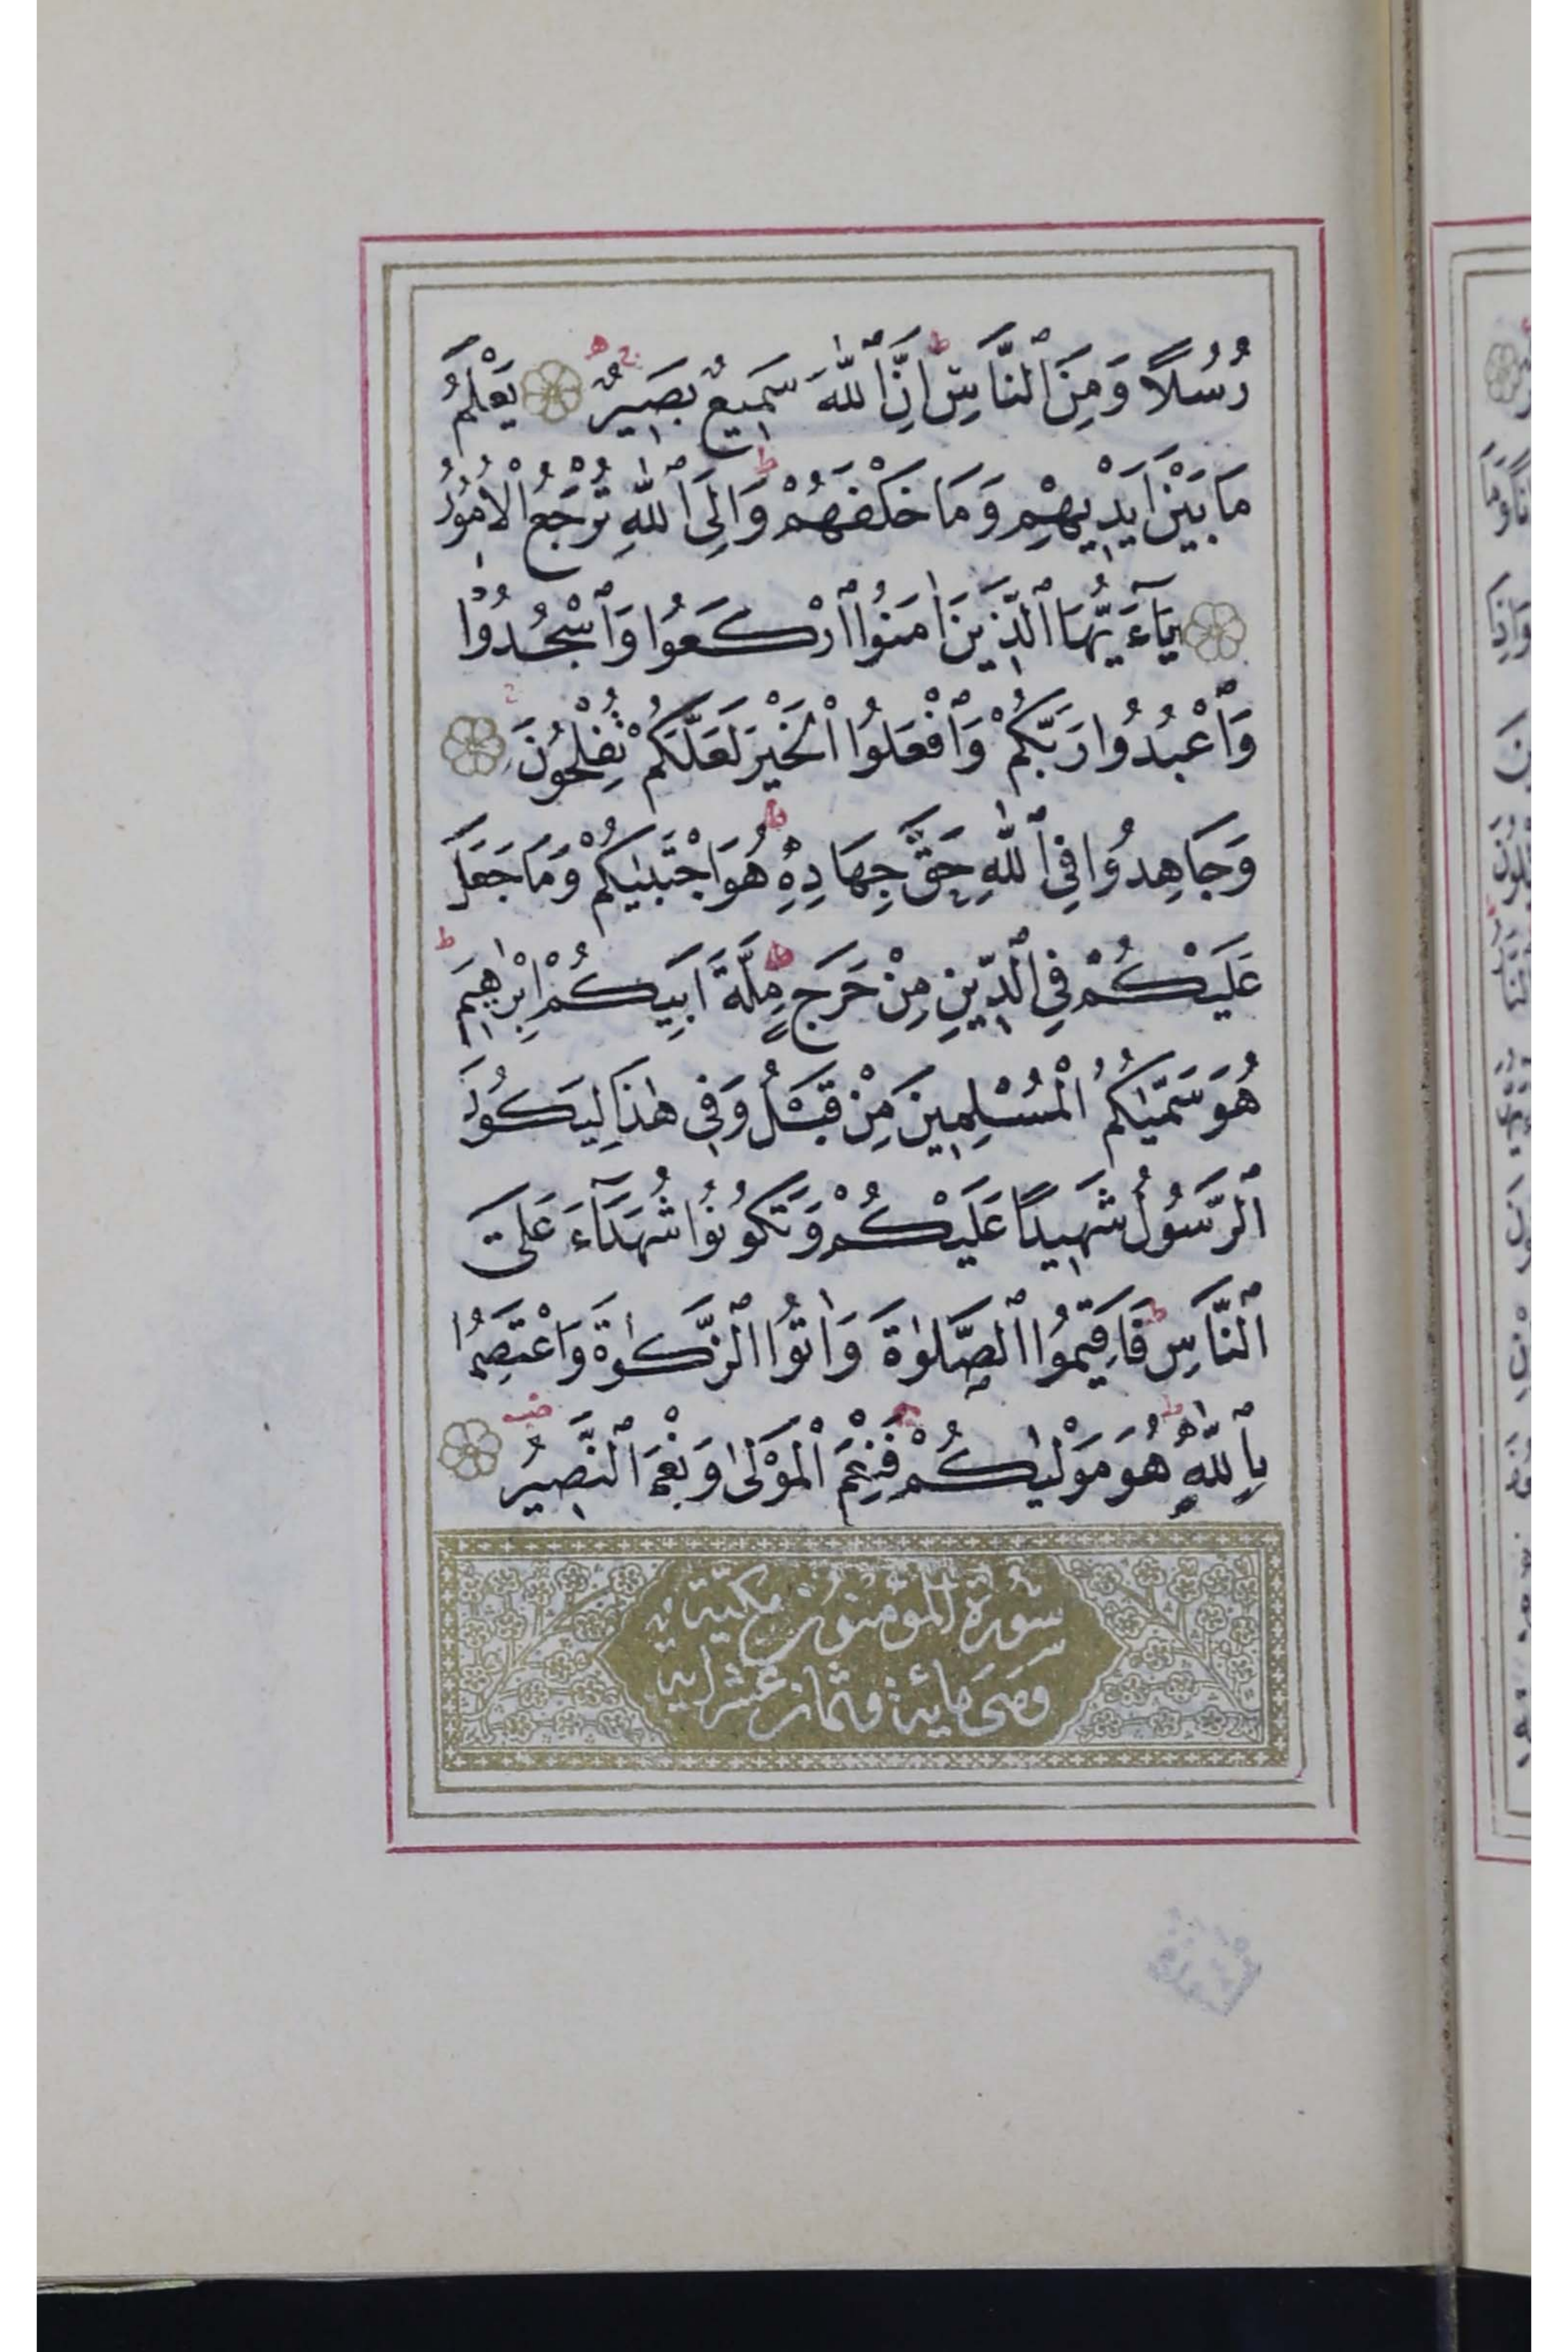 رُسُلًا وَمِنَ ٱلنَّاسِ اِنَّ ٱللّٰهَ سَمِيعٌ بَصِيرٌ يَعْلَمُ
مَا بَيْنَ اَيْدِيهِمْ وَمَا خَلْفَهُمْ وَاِلَى ٱللّٰهِ تُرْجَعُ الْاُمُورُ
يَآءَيُّهَا ٱلَّذِينَ اٰمَنُوا ٱرْكَعُوا وَٱسْجُدُوْا
وَٱعْبُدُوا رَبَّكُمْ وَٱفْعَلُوا الْخَيْرَ لَعَلَّكُمْ تُفْلِحُونَ
وَجَاهِدُوا فِي ٱللّٰهِ حَقَّ جِهَادِهِ هُوَ اجْتَبٰيكُمْ وَمَا جَعَلَ
عَلَيْكُمْ فِي ٱلدِّينِ مِنْ حَرَجٍ مِلَّةَ اَبِيكُمْ اِبْرٰهِيمَ
هُوَ سَمّٰيكُمُ الْمُسْلِمِينَ مِنْ قَبْلُ وَفِي هٰذَا لِيَكُونَ
ٱلرَّسُولُ شَهِيدًا عَلَيْكُمْ وَتَكُونُوا شُهَدَآءَ عَلَى
ٱلنَّاسِ فَاَقِيمُوا ٱلصَّلٰوةَ وَاٰتُوا ٱلزَّكٰوةَ وَاعْتَصِمُوا
بِٱللّٰهِ هُوَ مَوْلٰيكُمْ فَنِعْمَ الْمَوْلٰى وَنِعْمَ ٱلنَّصِيرُ
سُورَة الْمُؤْمِنُونَ مكيّة
وهى مائة وثمان عشر اية